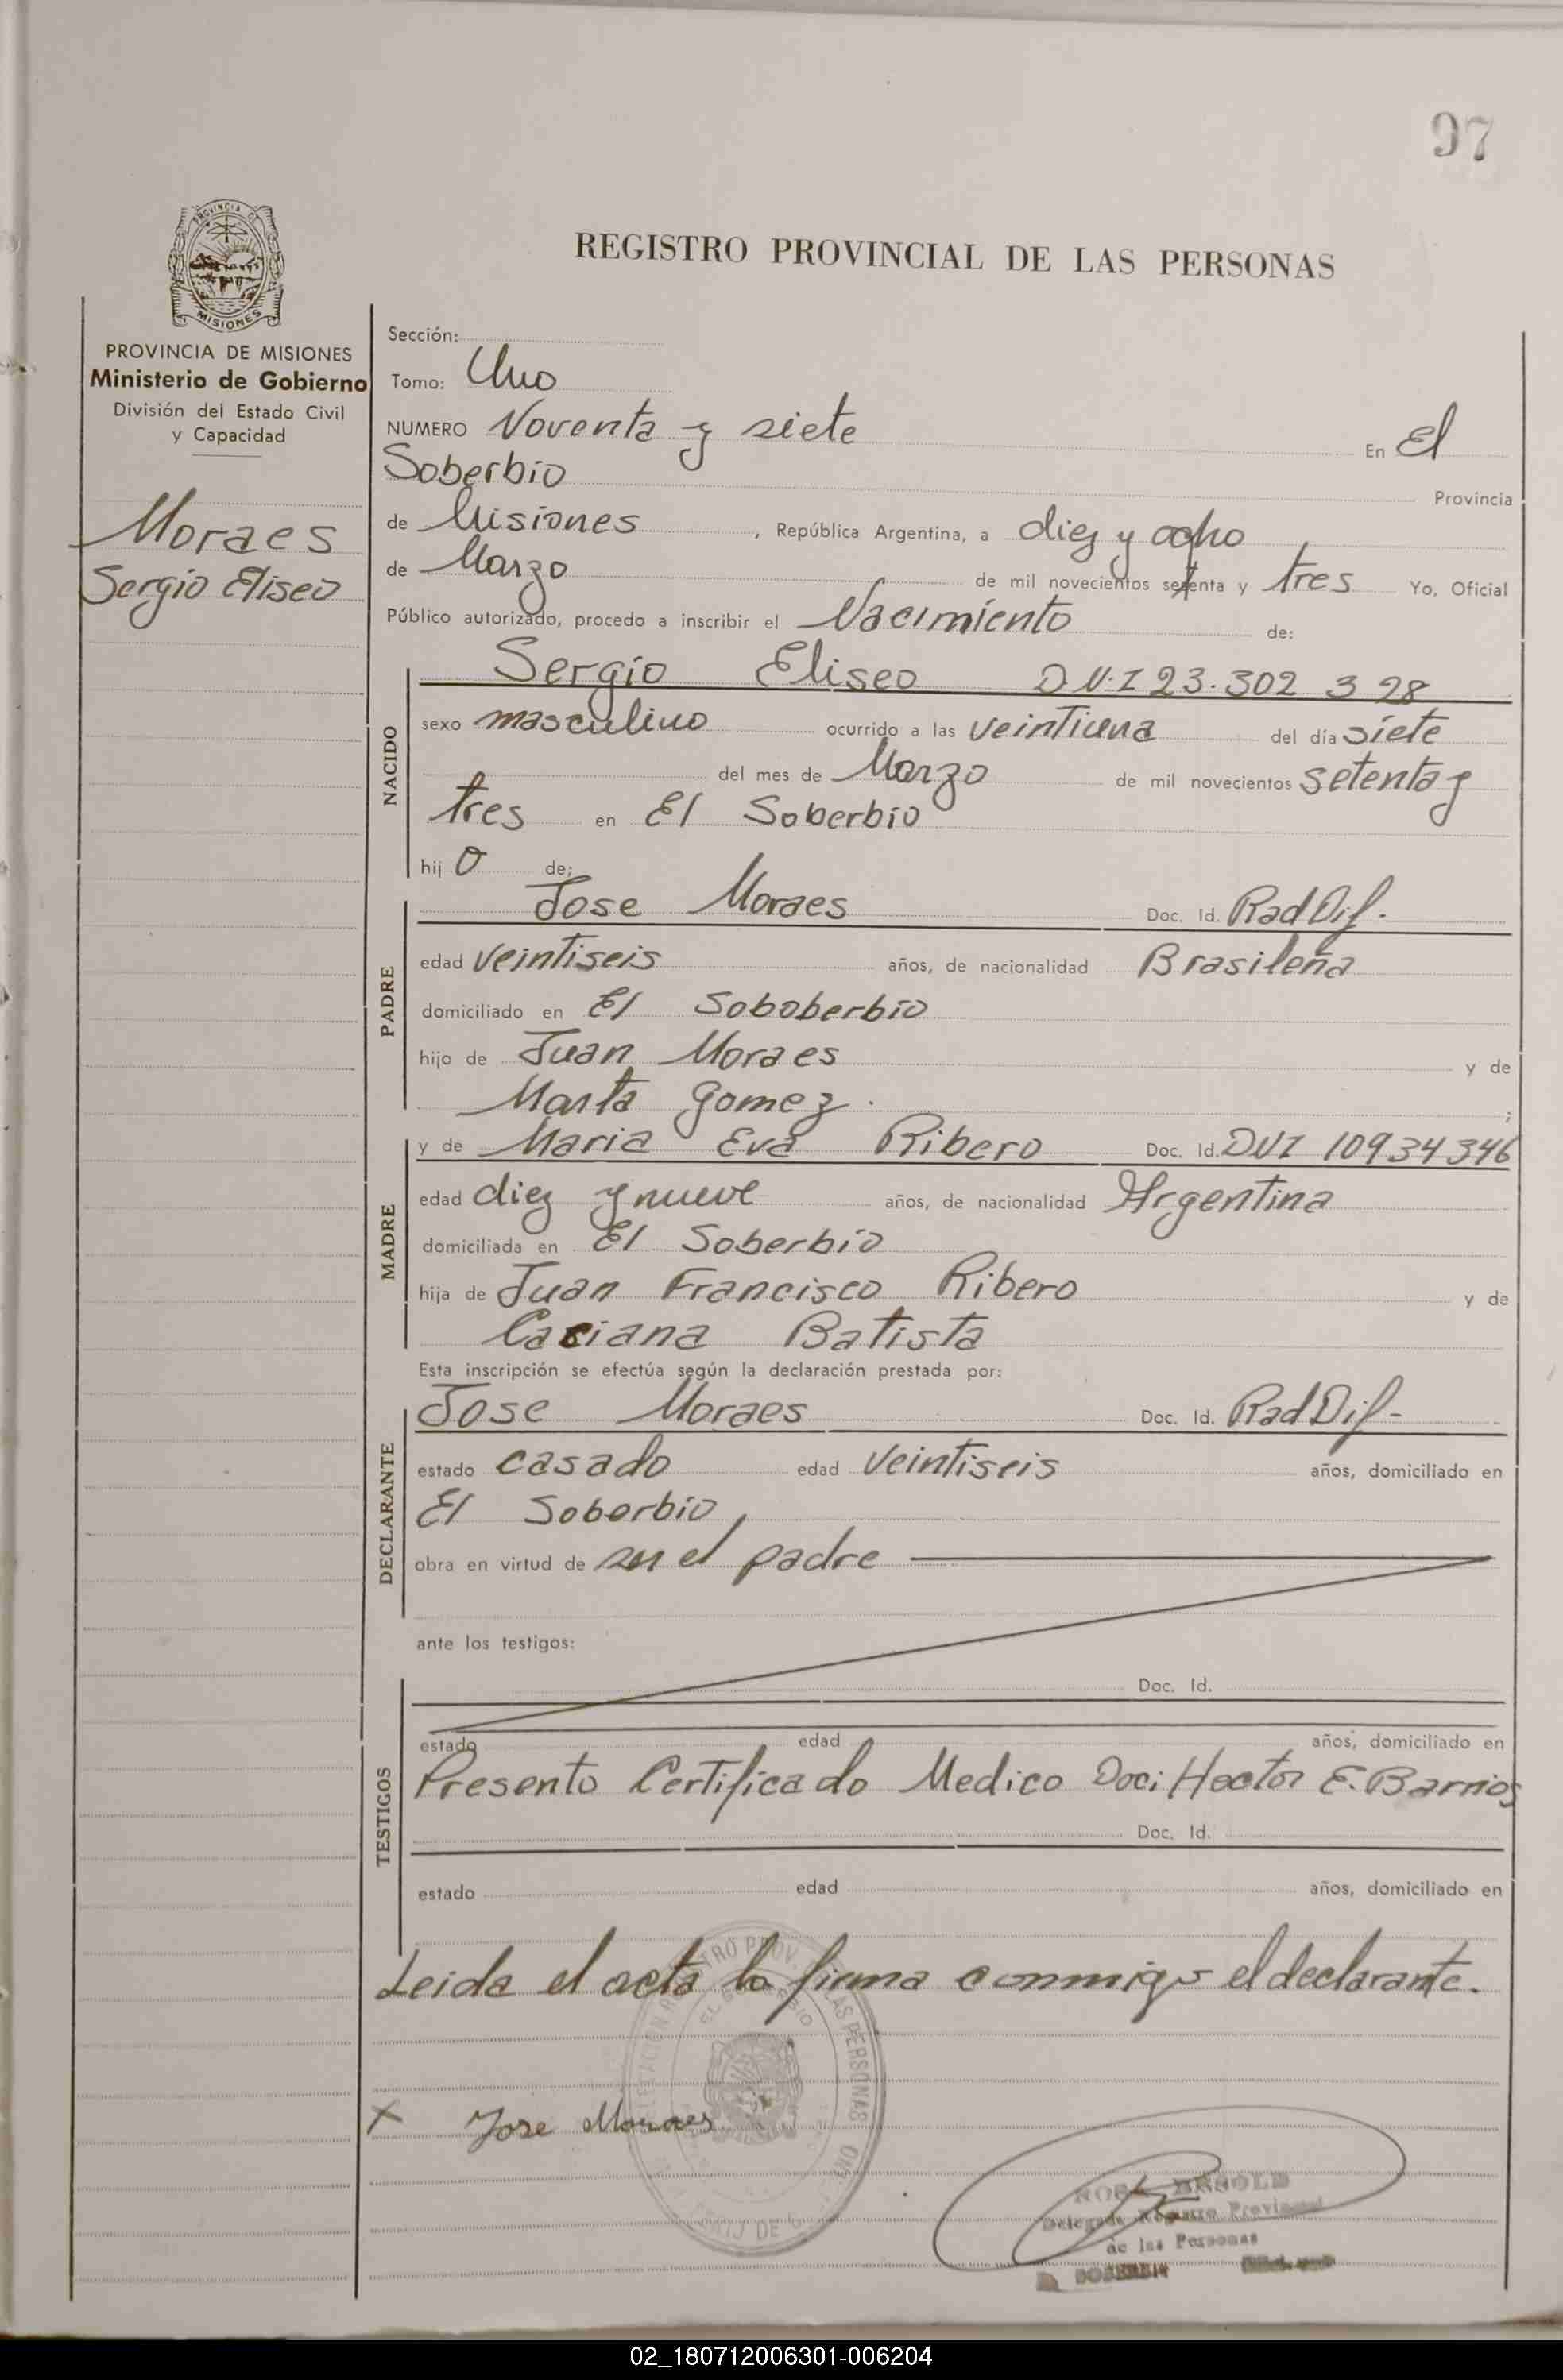 97
PROVINCIA DE
MISIONES
REGISTRO PROVINCIAL DE LAS PERSONAS
PROVINCIA DE MISIONES
Ministerio de Gobierno
División del Estado Civil
y Capacidad
Moraes
Sergio Eliseo
Sección:
Tomo: Uno
NUMERO Noventa y siete En El
Soberbio Provincia
de Misiones, República Argentina, a diez y ocho
de Marzo de mil novecientos setenta y tres Yo, Oficial
Público autorizado, procedo a inscribir el Nacimiento de:
NACIDO
Sergio Eliseo D.N.I 23.302 328
sexo masculino ocurrido a las veintiuna del día siete
del mes de Marzo de mil novecientos setenta y
tres en El Soberbio
hijo de:
PADRE
Jose Moraes Doc. Id. Rad Dif.
edad veintiseis años, de nacionalidad Brasileña
domiciliado en El Soboberbio
hijo de Juan Moraes y de
Marta Gomez.;
MADRE
y de Maria Eva Ribero Doc. Id. DNI 10934346
edad diez y nueve años, de nacionalidad Argentina
domiciliada en El Soberbio
hija de Juan Francisco Ribero y de
Casiana Batista
Esta inscripción se efectúa según la declaración prestada por:
DECLARANTE
Jose Moraes Doc. Id. Rad Dif-
estado casado edad veintiseis años, domiciliado en
El Soberbio,
obra en virtud de ser el padre
ante los testigos:
TESTIGOS
Doc. Id.
estado edad años, domiciliado en
Presento Certificado Medico Doc: Hector E. Barrios
Doc. Id.
estado edad años, domiciliado en
Leida el acta la firma conmigo el declarante.
X Jose Moraes
Delegada Registro Provincial
de las Personas
02_180712006301-006204